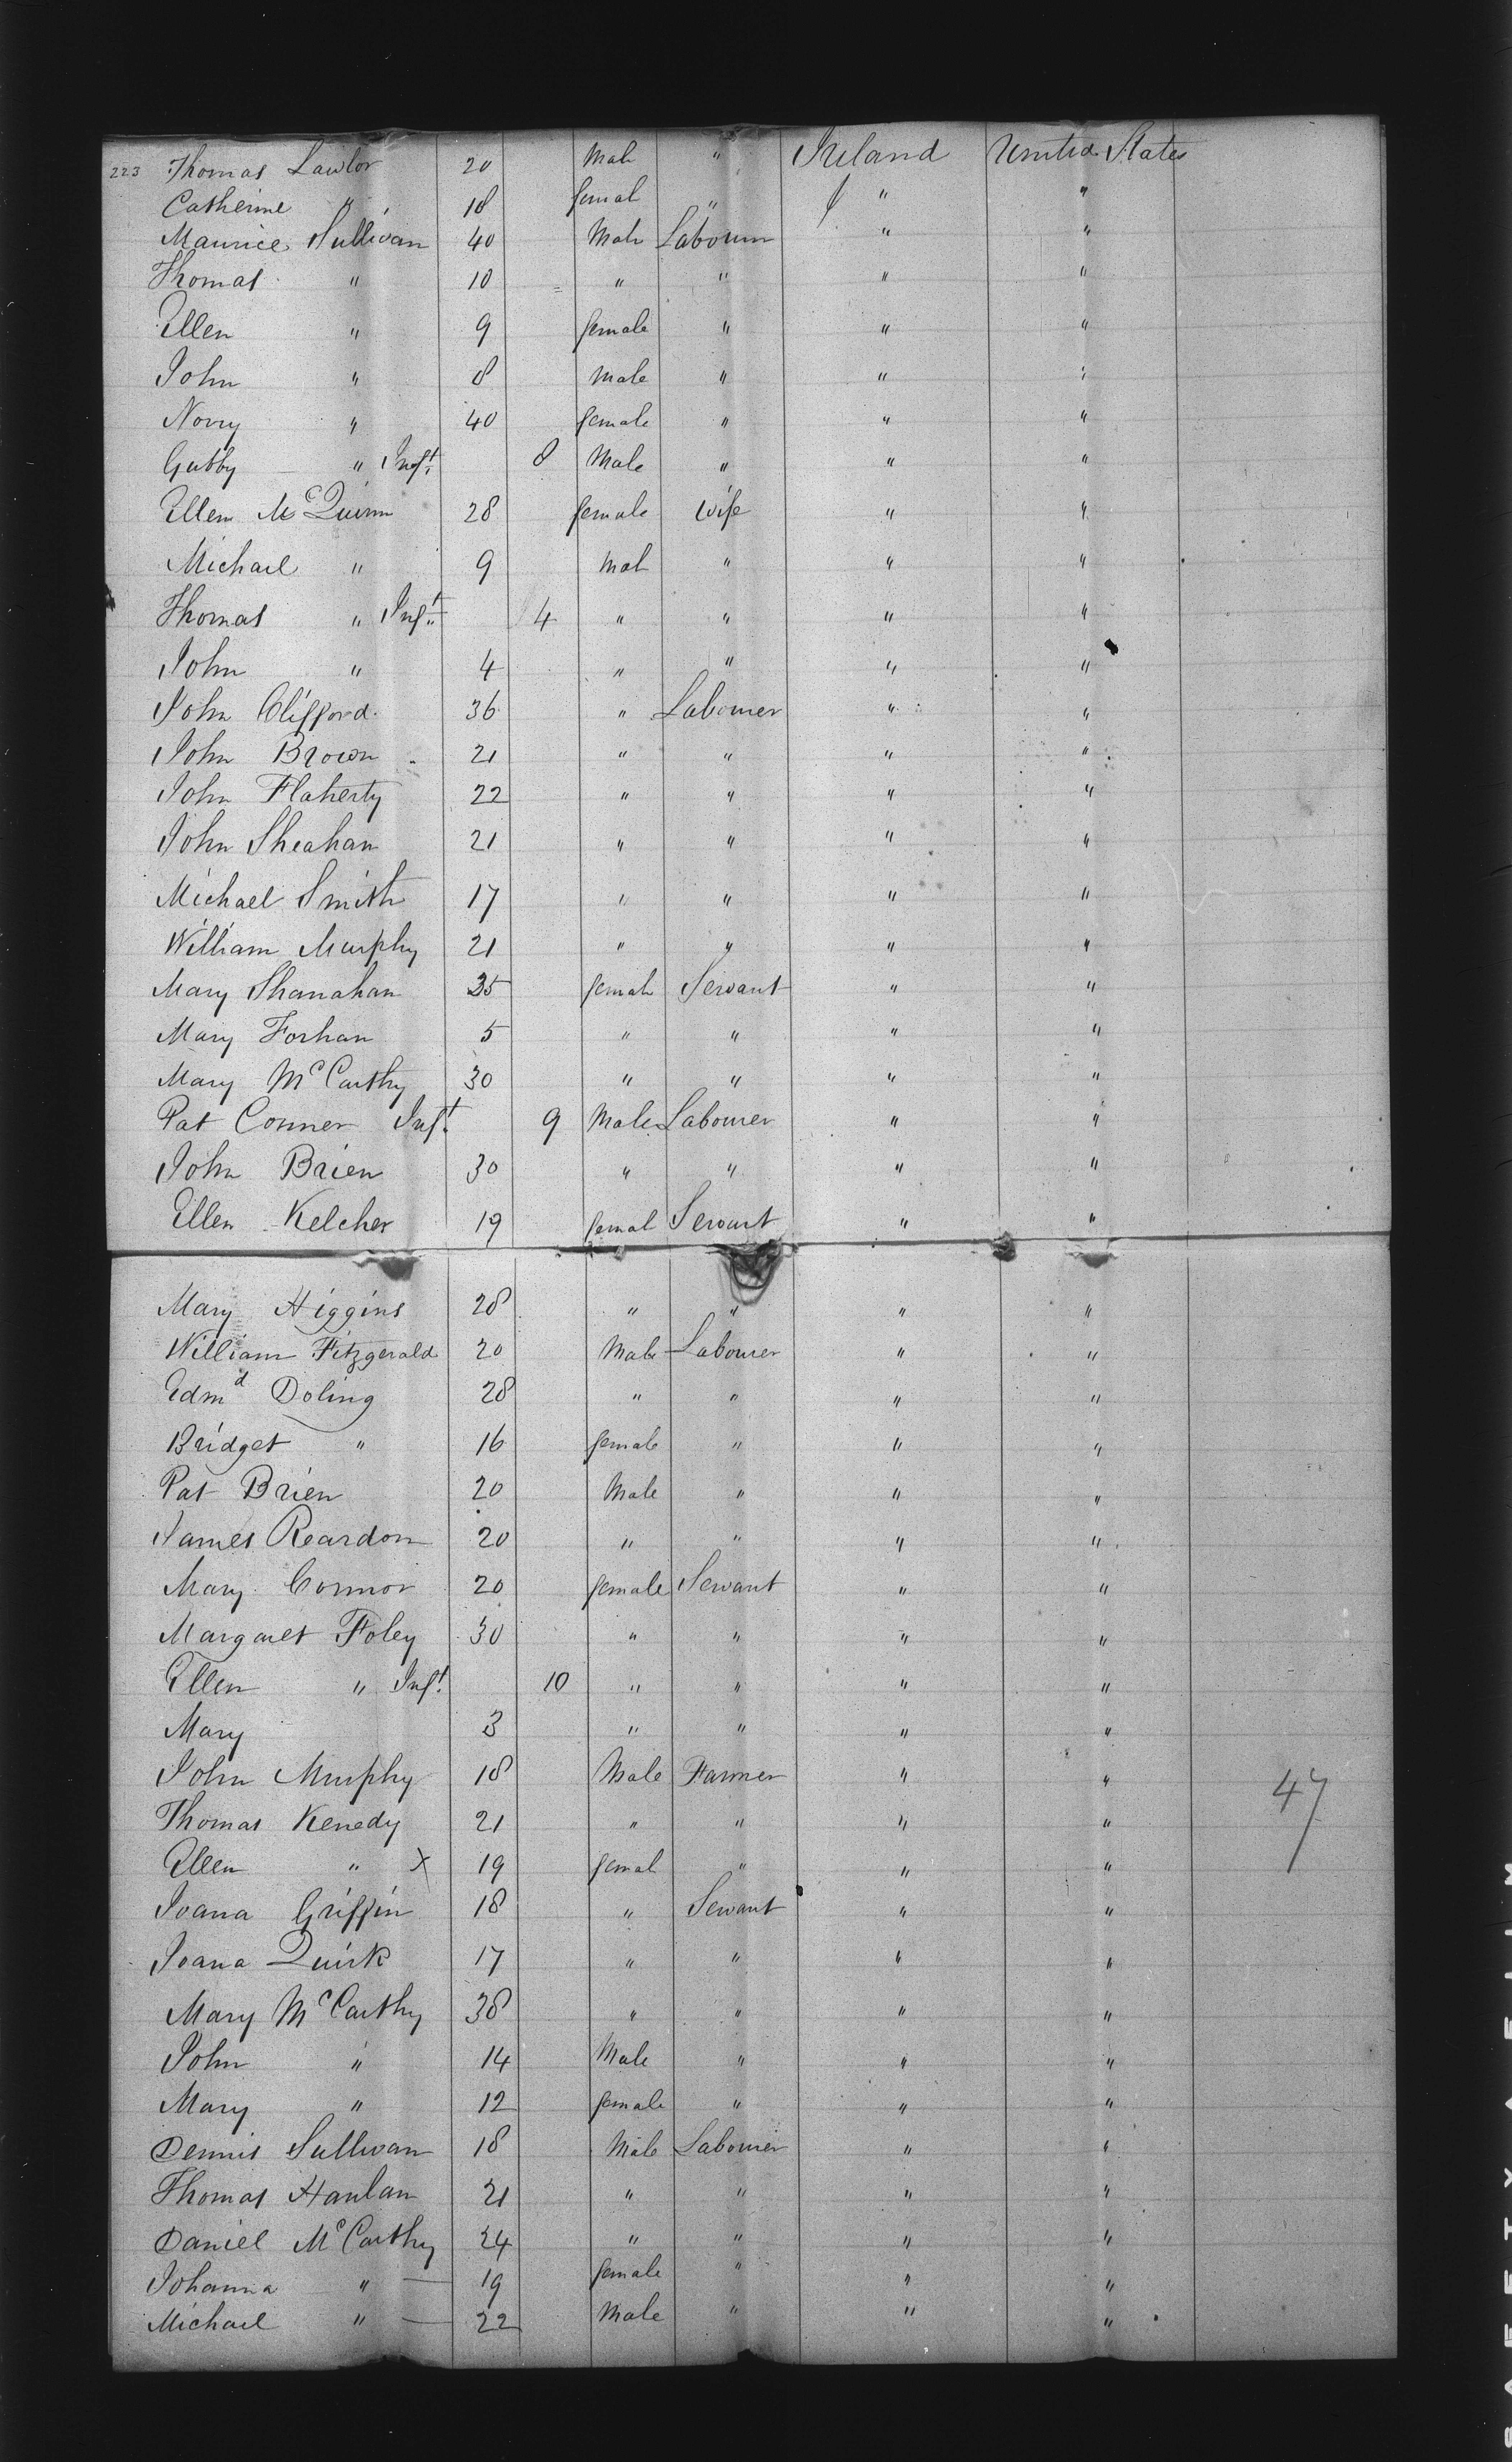 223 Thomas Lawlor 20 Male " Ireland United States
Catherine " 18 femal " " "
Maurice Sullivan 40 Male Labourer " "
Thomas " 10 " " " "
Ellen " 9 female " " "
John " 8 Male " " "
Norry " 40 female " " "
Gubby " Inft. 8 Male " " "
Ellen McQuinn 28 female Wife " "
Michael " 9 Mal " " "
Thomas " Inft. 4 " " " "
John " 4 " " " "
John Clifford 36 " Labourer " "
John Brown 21 " " " "
John Flaherty 22 " " " "
John Sheahan 21 " " " "
Michael Smith 17 " " " "
William Murphy 21 " " " "
Mary Shanahan 35 female Servant " "
Mary Forhan 5 " " " "
Mary McCarthy 30 " " " "
Pat Conner Inft. 9 Male Labourer " "
John Brien 30 " " " "
Ellen Kelcher 19 femal Servant " "
Mary Higgins 28 " " " "
William Fitzgerald 20 Male Labourer " "
Edmd Doling 28 " " " "
Bridget " 16 female " " "
Pat Brien 20 Male " " "
James Reardon 20 " " " "
Mary Connor 20 female Servant " "
Margaret Foley 30 " " " "
Ellen " Inft. 10 " " " "
Mary 3 " " " "
John Murphy 18 Male Farmer " " 47
Thomas Kenedy 21 " " " "
Ellen " X 19 femal " " "
Joana Griffin 18 " Servant " "
Joana Quirk 17 " " " "
Mary McCarthy 38 " " " "
John " 14 Male " " "
Mary " 12 female " " "
Dennis Sullivan 18 Male Labourer " "
Thomas Hanlan 21 " " " "
Daniel McCarthy 24 " " " "
Johanna " — 19 female " " "
Michael " — 22 Male " " "